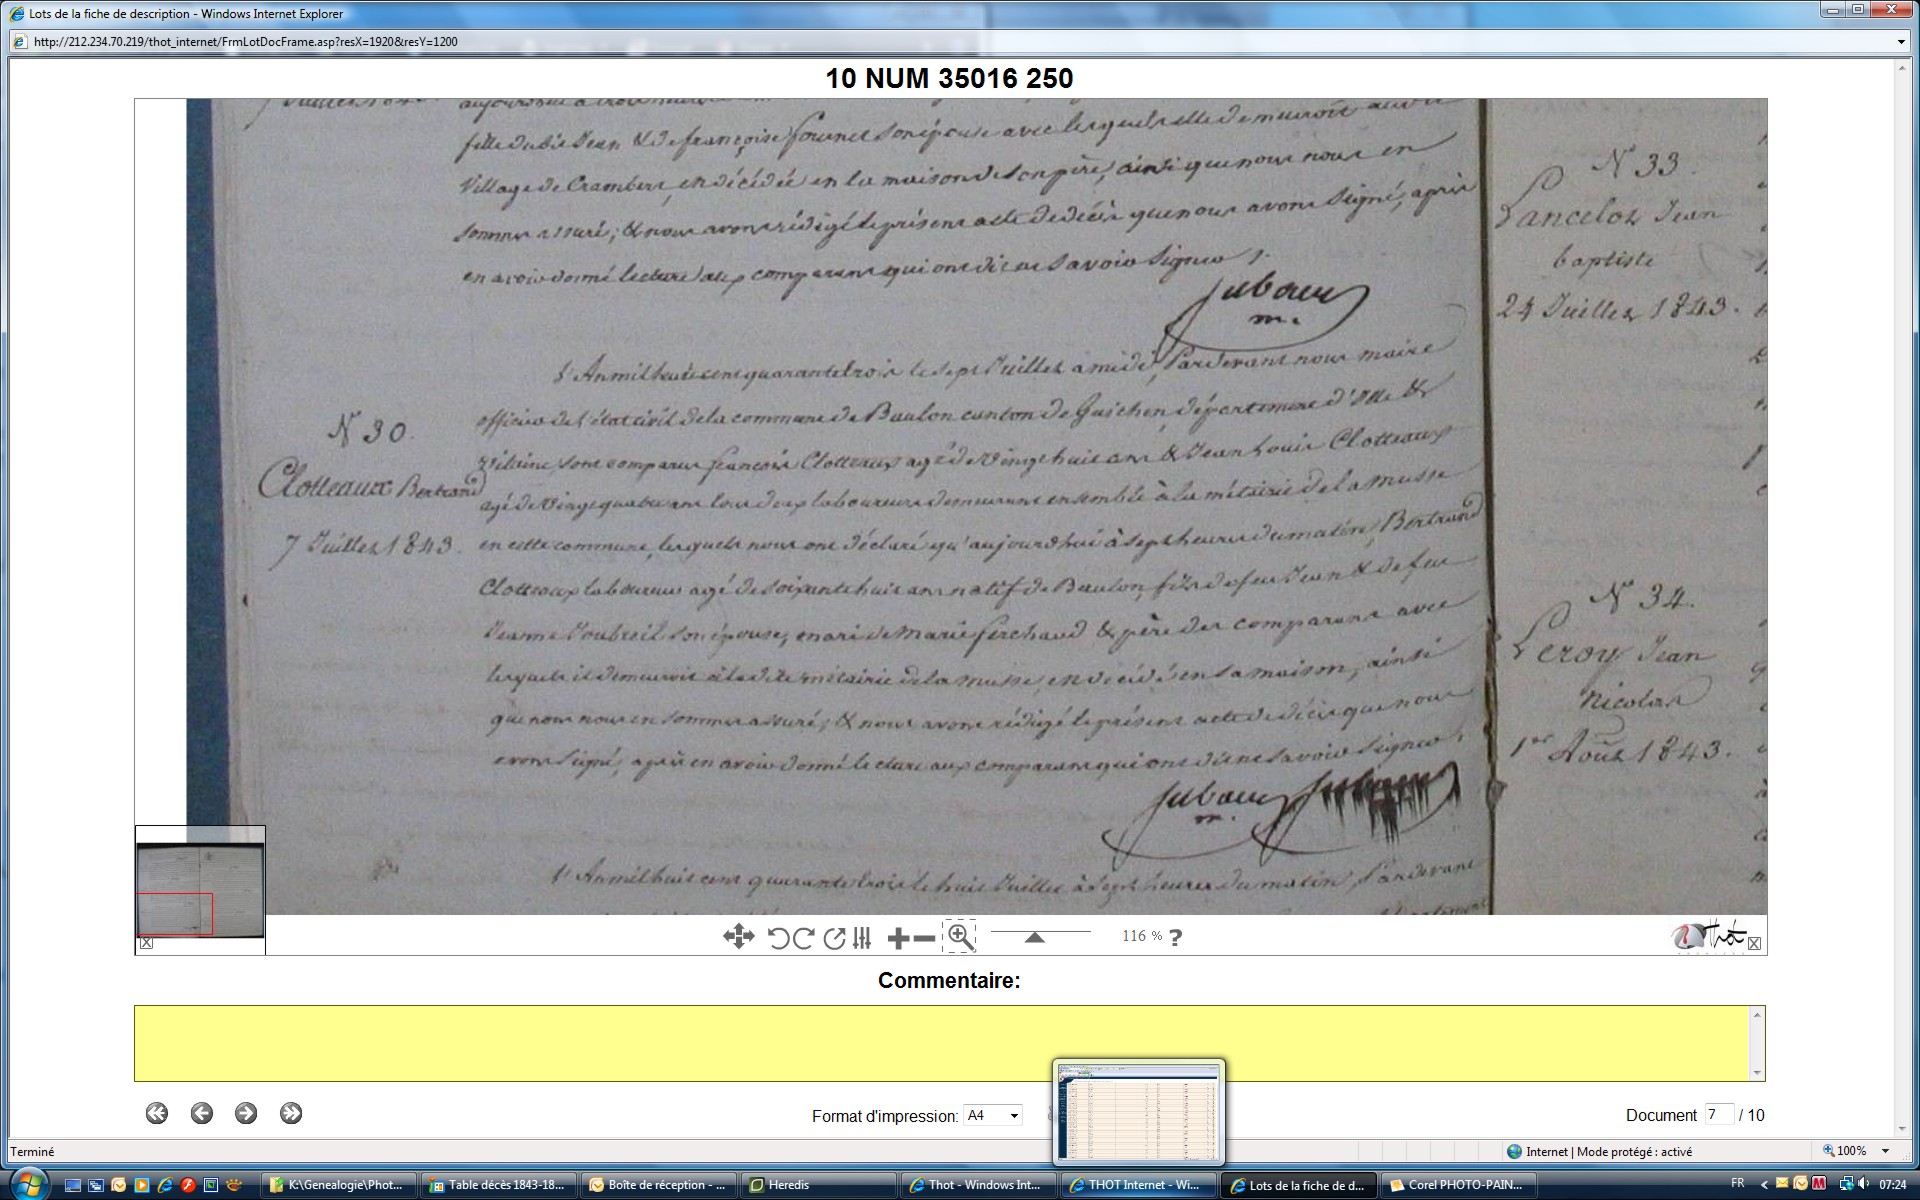 Lots de la fiche de description - Windows Internet Explorer
http://212.234.70.219/thot_internet/FrmLotDocFrame.asp?resX=1920&resY=1200
10 NUM 35016 250
fille dudit Jean & de françoise fournel son épouse avec lesquels elle demeuroit au dit
Village de Crambert, en décédée en la maison de son père, ainsi que nous nous en
sommes assuré; & nous avons rédigé le présent acte de décès que nous avons signé, après
en avoir donné lecture aux comparans qui ont dit ne savoir signer.
Jubaux
m.
N° 30.
Clotteaux Bertrand
7 Juillet 1843.
L'An mil huit cent quarante trois le sept Juillet à midi, Pardevant nous maire
officier de l'état civil de la commune de Baulon canton de Guichen, département d'Ille &
Vilaine sont comparus françois Clotteaux agé de vingt huit ans & Jean Louis Clotteaux
agé de vingt quatre ans tous deux laboureurs demeurant ensemble à la métairie de la musse
en cette commune, lesquels nous ont déclaré qu'aujourdhui à sept heures du matin, Bertrand
Clotteaux laboureur agé de soixante huit ans natif de Baulon, fils de feu Jean & de feue
Jeanne Joubreil son épouse, mari de Marie ferchaud & père des comparans avec
lesquels il demeuroit à la dite métairie de la musse, en décédé en sa maison, ainsi
que nous nous en sommes assuré; & nous avons rédigé le présent acte de décès que nous
avons signé, après en avoir donné lecture aux comparans qui ont dit ne savoir signer.
Jubaux
m.
L'An mil huit cent quarante trois le huit Juillet à sept heures du matin, Pardevant
N° 33.
Lancelot Jean
baptiste
24 Juillet 1843.
N° 34.
Leroy Jean
nicolas
1er Août 1843.
116 % ?
Thot
Commentaire:
Format d'impression: A4
Document 7 / 10
Terminé
Internet | Mode protégé : activé
100%
K:\Genealogie\Phot...
Table décès 1843-18...
Boîte de réception - ...
Heredis
Thot - Windows Int...
THOT Internet - Wi...
Lots de la fiche de d...
Corel PHOTO-PAIN...
FR
07:24